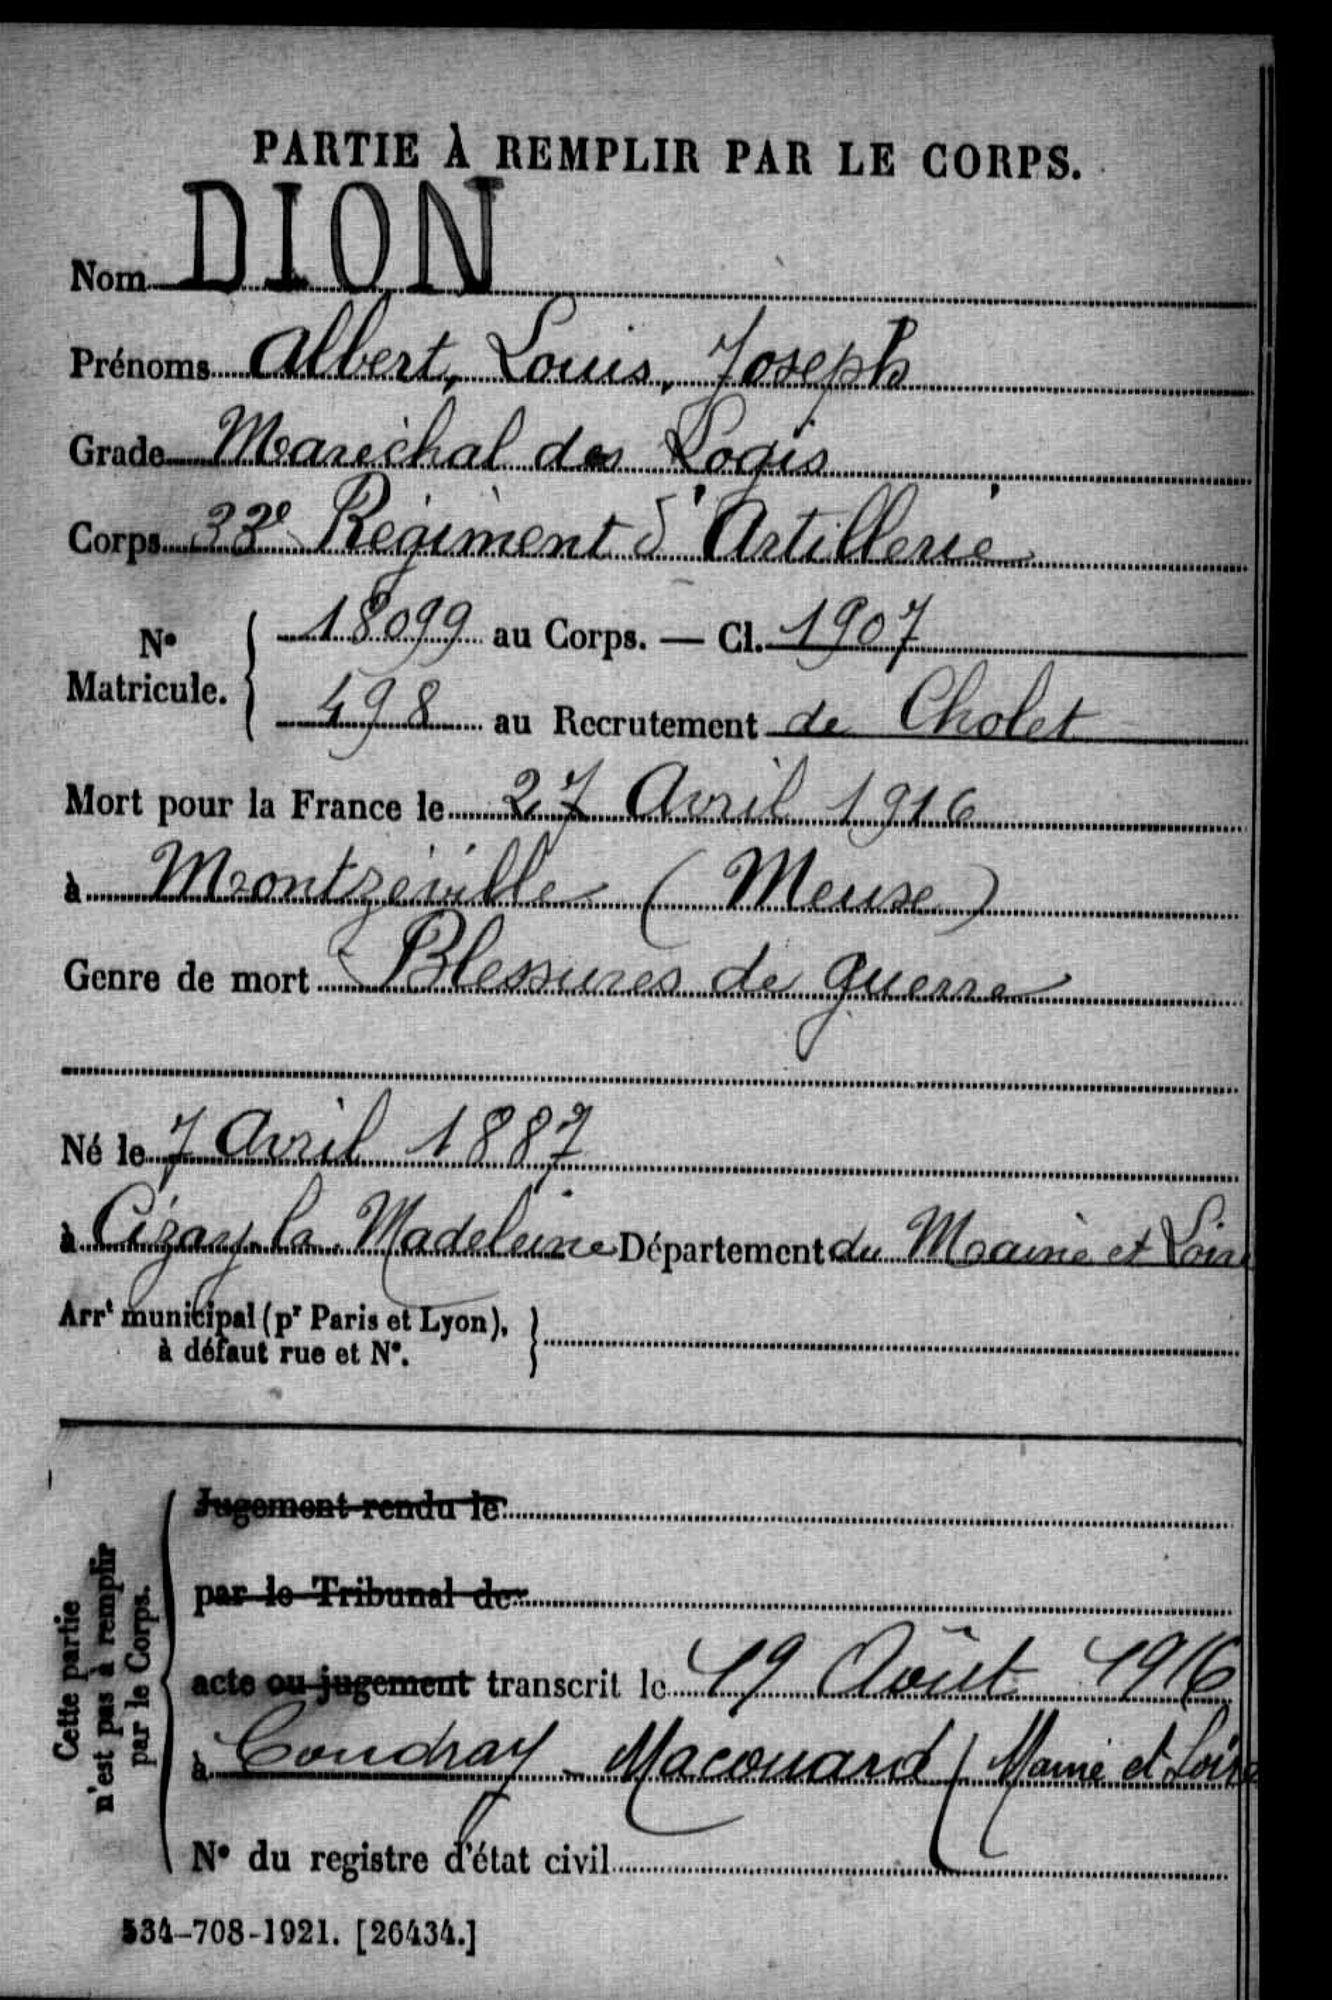 PARTIE À REMPLIR PAR LE CORPS.
Nom DION
Prénoms Albert, Louis, Joseph
Grade Maréchal des Logis
Corps 33e Régiment d'Artillerie
N° Matricule. { 18099 au Corps. — Cl. 1907
498 au Recrutement de Cholet
Mort pour la France le 27 Avril 1916
à Montzéville (Meuse)
Genre de mort Blessures de guerre
Né le 7 Avril 1887
à Cizay-la-Madeleine Département du Maine et Loire
Arrt municipal (pr Paris et Lyon),
à défaut rue et N°. }
Cette partie
n'est pas à remplir
par le Corps.
Jugement rendu le
par le Tribunal de
acte ou jugement transcrit le 19 Août 1916
à Coudray-Macouard (Maine et Loire
N° du registre d'état civil
534-708-1921. [26434.]